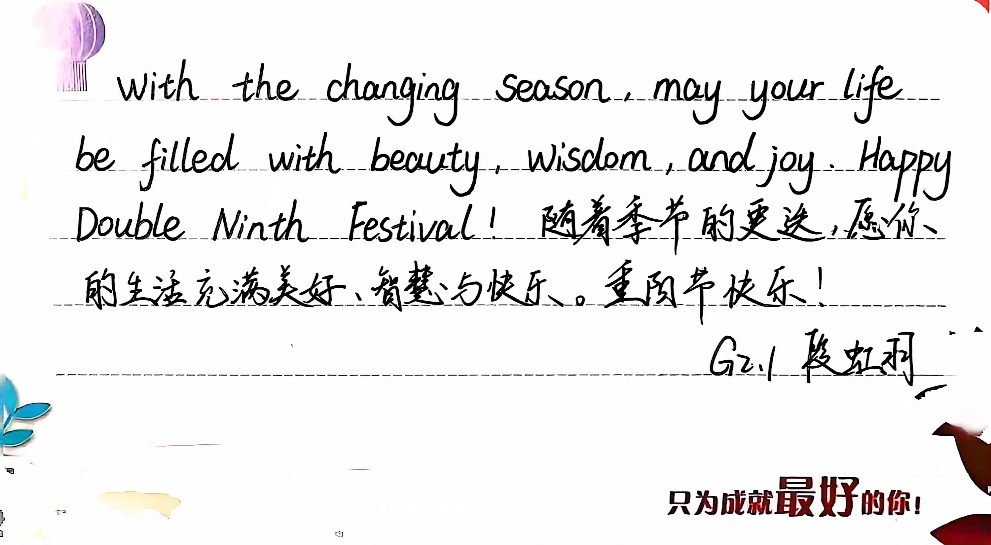 with the changing season, may your life
be filled with beauty, wisdom, and joy. Happy
Double Ninth Festival! 随着季节的更迭,愿你
的生活充满美好、智慧与快乐。重阳节快乐!
G2.1 段虹羽
只为成就最好的你!